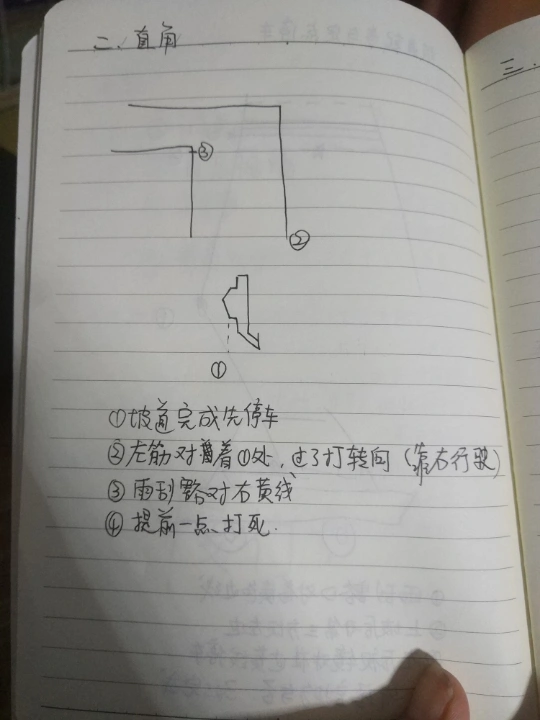 二、直角
三、
③
②
①
①坡道完成先停车
②左筋对着①处，过了打转向（靠右行驶）
③雨刮器对右黄线
④提前一点、打死.